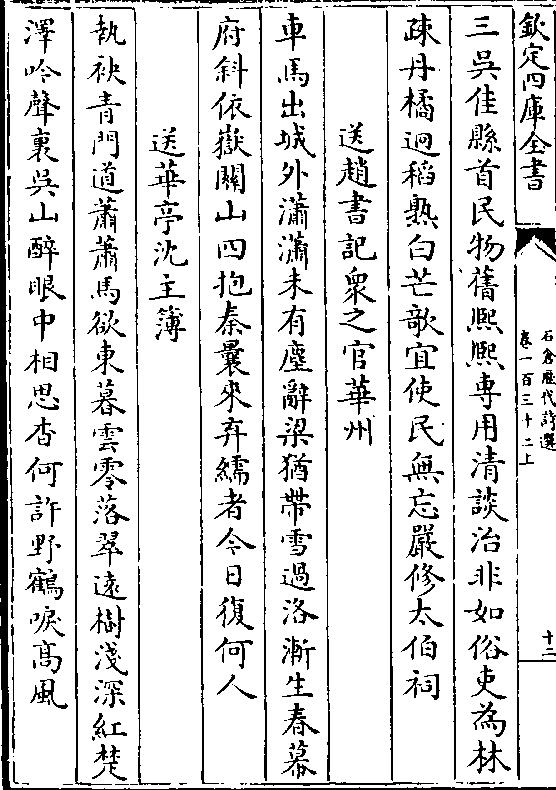 欽定四庫全書
石倉歷代詩選
卷一百三十二上
十二
三吳佳縣首民物舊熈熈專用清談治非如俗吏為林
疎丹橘迥稻熟白芒歌宜使民無忘嚴修太伯祠
送趙書記衆之官華州
車馬出城外瀟瀟未有塵辭梁猶帶雪過洛漸生春幕
府斜依嶽關山四抱秦曩來弃繻者今日復何人
送華亭沈主簿
執袂青門道蕭蕭馬欲東暮雲零落翠遠樹淺深紅楚
澤吟聲裏吳山醉眼中相思杳何許野鶴唳髙風